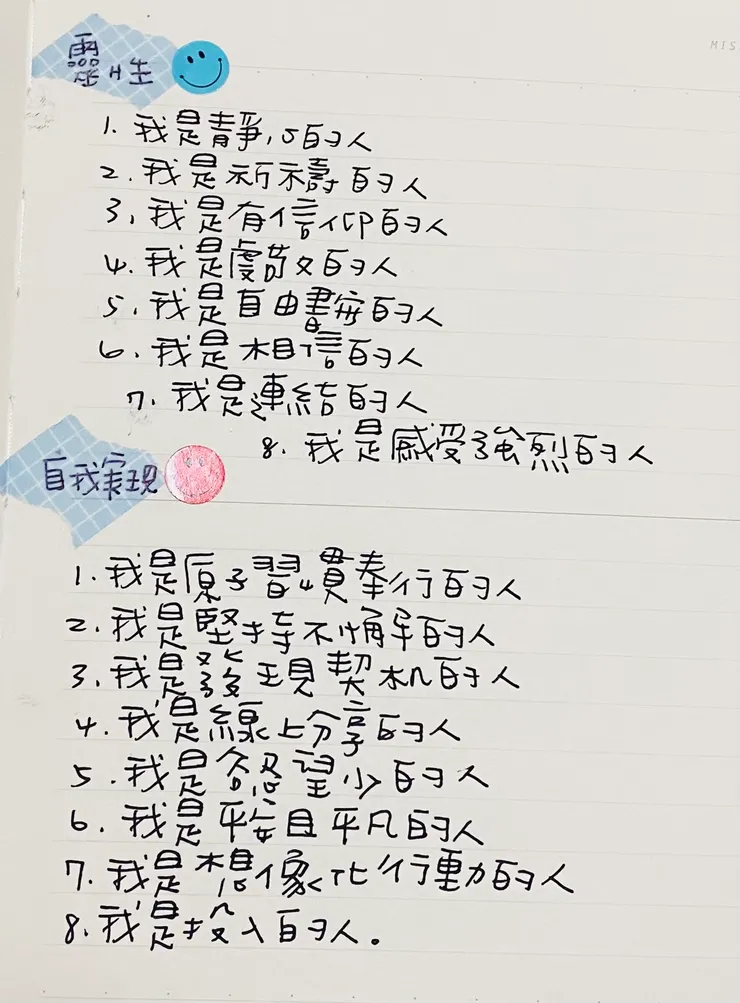 MIS
靈性
1. 我是靜心的人
2. 我是祈禱的人
3. 我是有信仰的人
4. 我是虔敬的人
5. 我是自由書寫的人
6. 我是相信的人
7. 我是連結的人
8. 我是感受強烈的人
自我實現
1. 我是原子習慣奉行的人
2. 我是堅持不懈的人
3. 我是發現契机的人
4. 我是線上分享的人
5. 我是慾望少的人
6. 我是平安且平凡的人
7. 我是想像化行動的人
8. 我是投入的人。